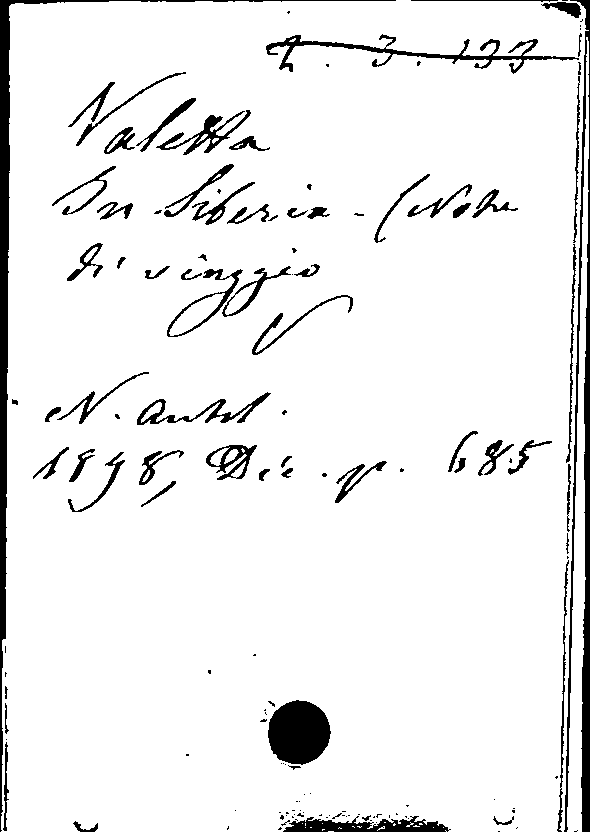 2. 3. 133
Valetta
In Siberia - (Note
di viaggio
N. Antol.
1898, Dic. p. 685